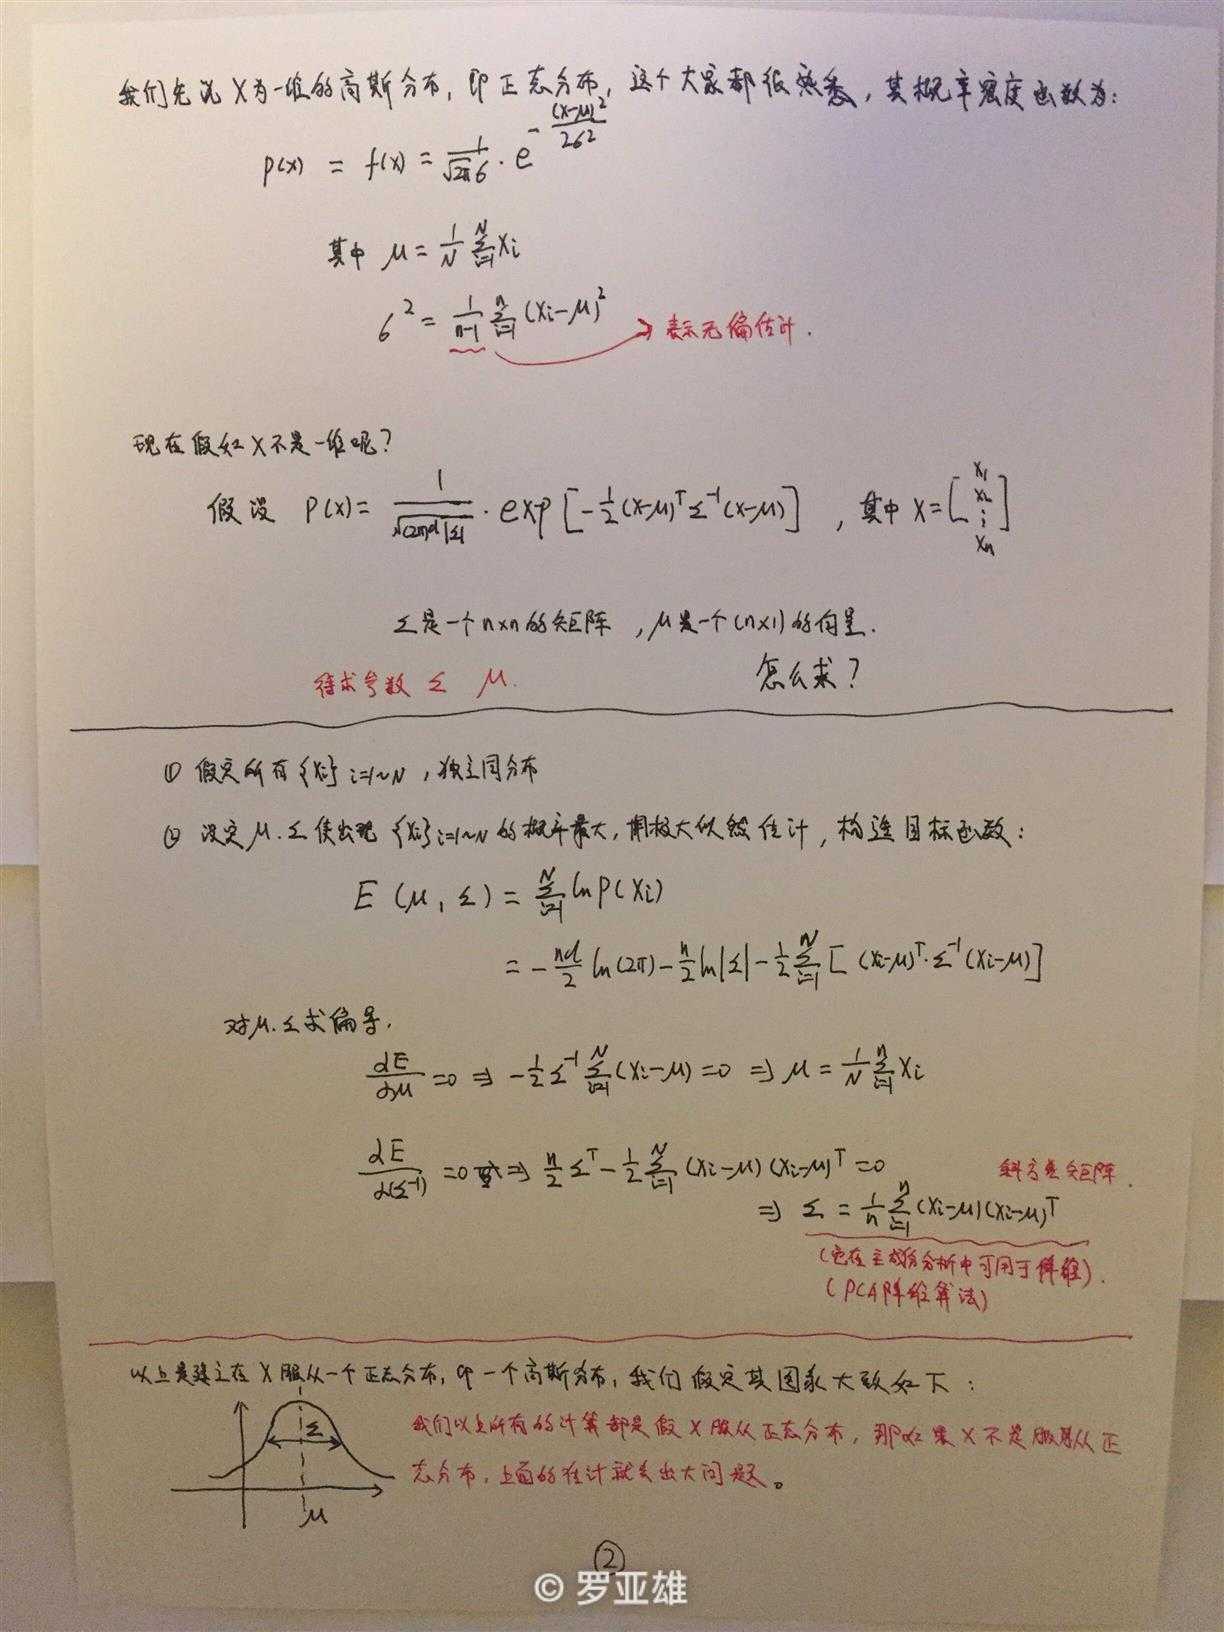 我们先说X为一维的高斯分布，即正态分布，这个大家都很熟悉，其概率密度函数为：
P(x) = f(x) = 1/(√2π б) · e^(-(x-μ)²/2б²)
其中 μ = 1/N Σ_{i=1}^{N} Xi
б² = 1/(n-1) Σ_{i=1}^{n} (Xi-μ)² → 表示无偏估计.
现在假如X不是一维呢？
假设 P(X) = 1/√((2π)^d |Σ|) · exp[-1/2 (X-μ)^T Σ^-1 (X-μ)] ，其中 X = [X1 X2 ⋮ Xn]
Σ是一个n×n的矩阵，μ是一个(n×1)的向量.
待求参数 Σ μ. 怎么求？
① 假定所有{Xi} i=1~N，独立同分布
② 设定μ.Σ使出现{Xi} i=1~N的概率最大，用极大似然估计，构造目标函数：
E(μ, Σ) = Σ_{i=1}^{N} ln P(Xi)
= -nd/2 ln(2π) - n/2 ln|Σ| - 1/2 Σ_{i=1}^{N} [(Xi-μ)^T · Σ^-1 (Xi-μ)]
对μ.Σ求偏导.
∂E/∂μ = 0 ⇒ -1/2 Σ^-1 Σ_{i=1}^{N} (Xi-μ) = 0 ⇒ μ = 1/N Σ_{i=1}^{n} Xi
∂E/∂(Σ^-1) = 0 ⇒ n/2 Σ^T - 1/2 Σ_{i=1}^{N} (Xi-μ)(Xi-μ)^T = 0
斜方差矩阵.
⇒ Σ = 1/n Σ_{i=1}^{n} (Xi-μ)(Xi-μ)^T
(它在主成份分析中可用于降维).
(PCA降维算法)
以上是建立在X服从一个正态分布，即一个高斯分布，我们假定其图象大致如下：
Σ
μ
我们以上所有的计算都是假X服从正态分布，那如果X不是服从正
态分布，上面的估计就会出大问题。
②
© 罗亚雄